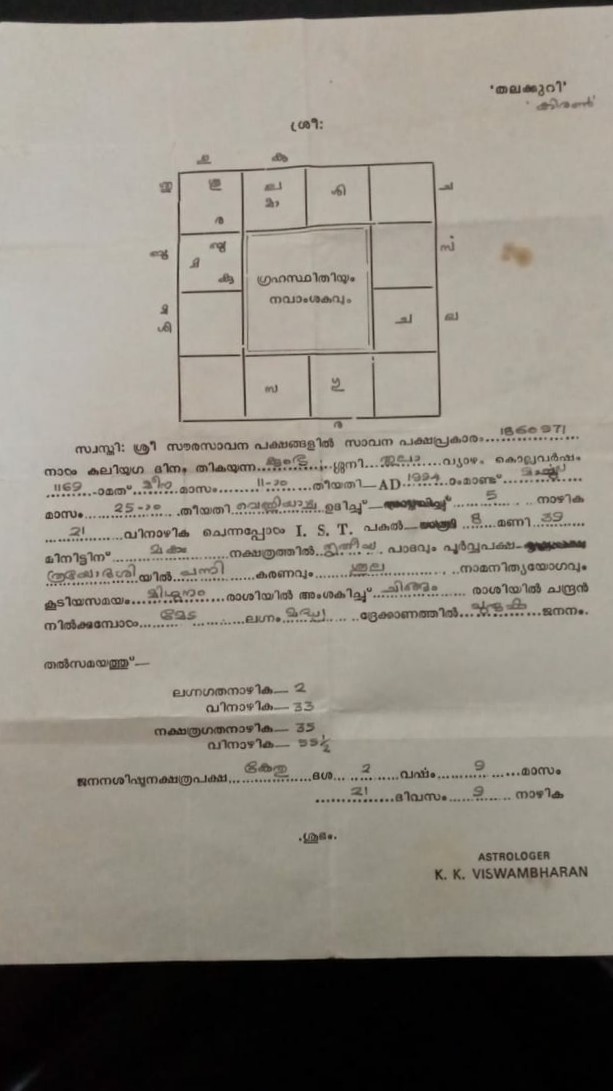 'തലക്കുറി'
'കിരൺ'
ശ്രീ:
ഗ്രഹസ്ഥിതിയും
നവാംശകവും
സ്വസ്തി: ശ്രീ സൗരസാവന പക്ഷങ്ങളിൽ സാവന പക്ഷപ്രകാരം 1860971
നാഠം കലിയുഗ ദിനം തികയുന്ന ശനി തുലാ വ്യാഴം കൊല്ലവർഷം
1169 -ാമത് മീനം മാസം 11-ാം തീയതി—AD 1994 ാം മാണ്ട് മാർച്ച്
മാസം 25-ാം തീയതി വെള്ളിയാഴ്ച ഉദിച്ച് 5 നാഴിക
21 വിനാഴിക ചെന്നപ്പോൾ I. S. T. പകൽ— 8 മണി 39
മിനിട്ടിന് മകം നക്ഷത്രത്തിൽ തൃതീയ പാദവും പൂർവ്വപക്ഷ
ത്രയോദശി യിൽ പന്നി കരണവും ശൂല നാമനിത്യയോഗവും
കൂടിയസമയം മിഥുനം രാശിയിൽ അംശകിച്ച് ചിങ്ങം രാശിയിൽ ചന്ദ്രൻ
നിൽക്കുമ്പോൾ മേട ലഗ്നം മദ്ധ്യ ദ്രേക്കാണത്തിൽ ജനനം.
തൽസമയത്തു്—
ലഗ്നഗതനാഴിക— 2
വിനാഴിക— 33
നക്ഷത്രഗതനാഴിക— 35
വിനാഴിക— 55½
ജനനശിഷ്ടനക്ഷത്രപക്ഷ കേതു ദശ 2 വർഷം 9 മാസം
21 ദിവസം 9 നാഴിക
.ശുഭം.
ASTROLOGER
K. K. VISWAMBHARAN